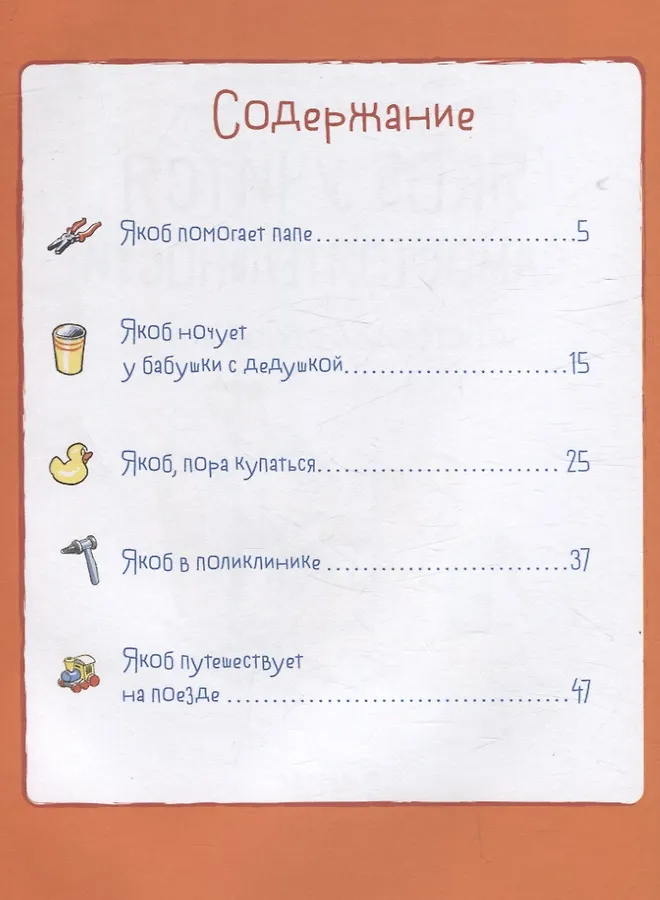 Содержание
Якоб помогает папе..............................5
Якоб ночует
у бабушки с дедушкой..........................15
Якоб, пора купаться............................ 25
Якоб в поликлинике ............................37
Якоб путешествует
на поезде .......................................47